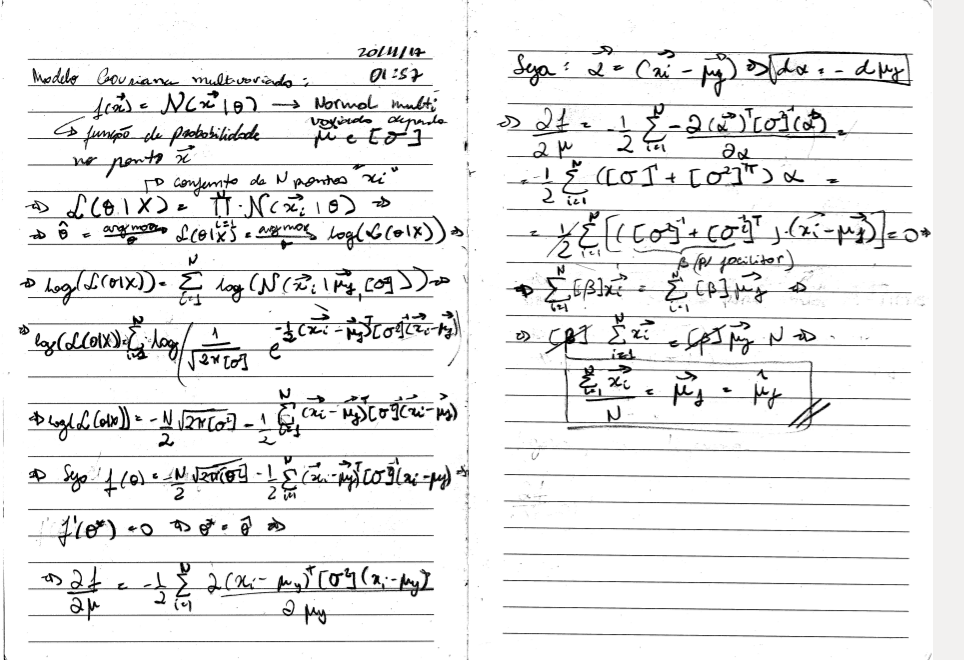 20/11/17
Modelo Gaussiana multivariada: 01:57
f(x⃗) = N(x⃗ | θ) → Normal multi
variada depende
↳ função de probabilidade μ e [σ²]
no ponto x⃗
↱ conjunto de N pontos "xi"
⇒ L(θ|X) = ∏_{i=1}^{N} N(x⃗i | θ) ⇒
⇒ θ̂ = argmax_θ L(θ|X) = argmax_θ log(L(θ|X)) ⇒
⇒ log(L(θ|X)) = Σ_{i=1}^{N} log(N(x⃗i | μ⃗y, [σ²])) ⇒
⇒ log(L(θ|X)) = Σ_{i=1}^{N} log( 1/√(2π[σ²]) e^{-1/2 (x⃗i - μ⃗y)^T [σ²]^{-1} (x⃗i - μ⃗y)} )
⇒ log(L(θ|X)) = -N/2 √(2π[σ²]) - 1/2 Σ_{i=1}^{N} (x⃗i - μ⃗y)^T [σ²]^{-1} (x⃗i - μ⃗y)
⇒ Seja f(θ) = -N/2 √(2π[σ²]) - 1/2 Σ_{i=1}^{N} (x⃗i - μ⃗y)^T [σ²]^{-1} (xi - μy) ⇒
f'(θ*) = 0 ⇒ θ* = θ̂ ⇒
⇒ ∂f/∂μ = -1/2 Σ_{i=1}^{N} ∂(xi - μy)^T [σ²] (xi - μy) / ∂μy
Seja: α⃗ = (x⃗i - μ⃗y) ⇒ dα = - dμy
⇒ ∂f/∂μ = -1/2 Σ_{i=1}^{N} -∂(α⃗)^T [σ²]^{-1} (α⃗) / ∂α =
= 1/2 Σ_{i=1}^{N} ([σ]^{-1} + [σ²]^{-T}) α =
= 1/2 Σ_{i=1}^{N} [([σ²]^{-1} + [σ²]^{-1T}) · (x⃗i - μ⃗y)] = 0 ⇒
β (p/ facilitar)
⇒ Σ_{i=1}^{N} [β] x⃗i = Σ_{i=1}^{N} [β] μ⃗y ⇒
⇒ [β] Σ_{i=1}^{N} x⃗i = [β] μ⃗y N ⇒
Σ_{i=1}^{N} x⃗i / N = μ⃗y = μ̂y